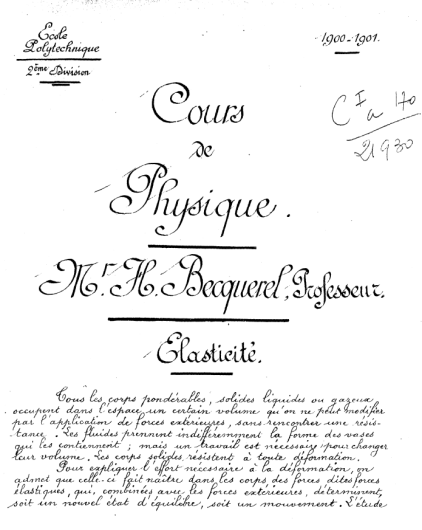 Ecole
Polytechnique
2ème Division
1900-1901.
Cours
de
Physique.
CIa 170
21930
Mr. H. Becquerel, Professeur.
Elasticité.
Tous les corps pondérables, solides liquides ou gazeux
occupent dans l'espace un certain volume qu'on ne peut modifier
par l'application de forces extérieures, sans rencontrer une résis-
tance. Les fluides prennent indifféremment la forme des vases
qui les contiennent ; mais un travail est nécessaire pour changer
leur volume. Les corps solides résistent à toute déformation.
Pour expliquer l'effort nécessaire à la déformation, on
admet que celle-ci fait naître dans les corps des forces dites forces
élastiques, qui, combinées avec les forces extérieures, déterminent,
soit un nouvel état d'équilibre, soit un mouvement. L'étude